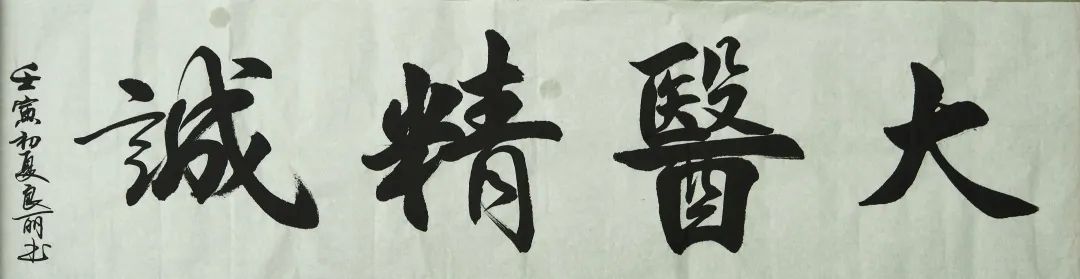 大醫精誠
壬寅初夏良丽书